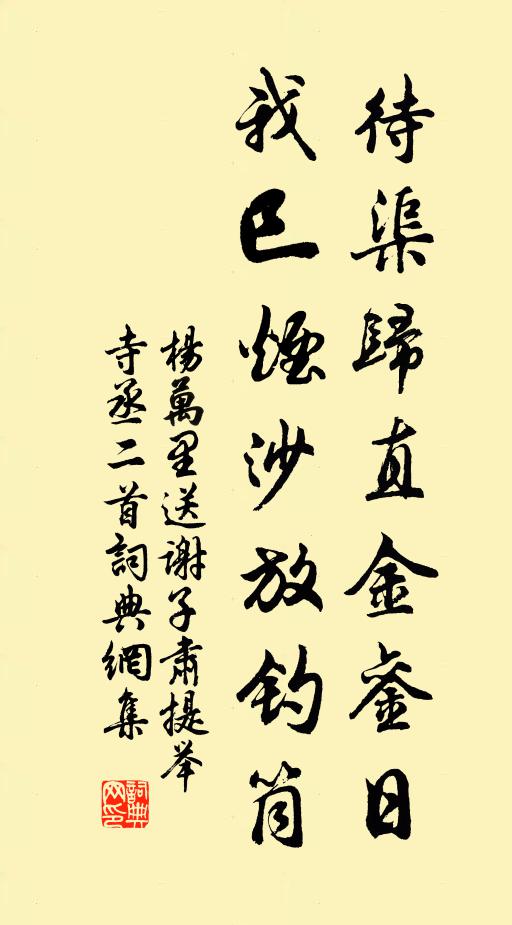 待渠歸直金鑾日
我已煙沙放釣筒
楊萬里送謝子肅提举
寺丞二首詞典網集
詞典
网印